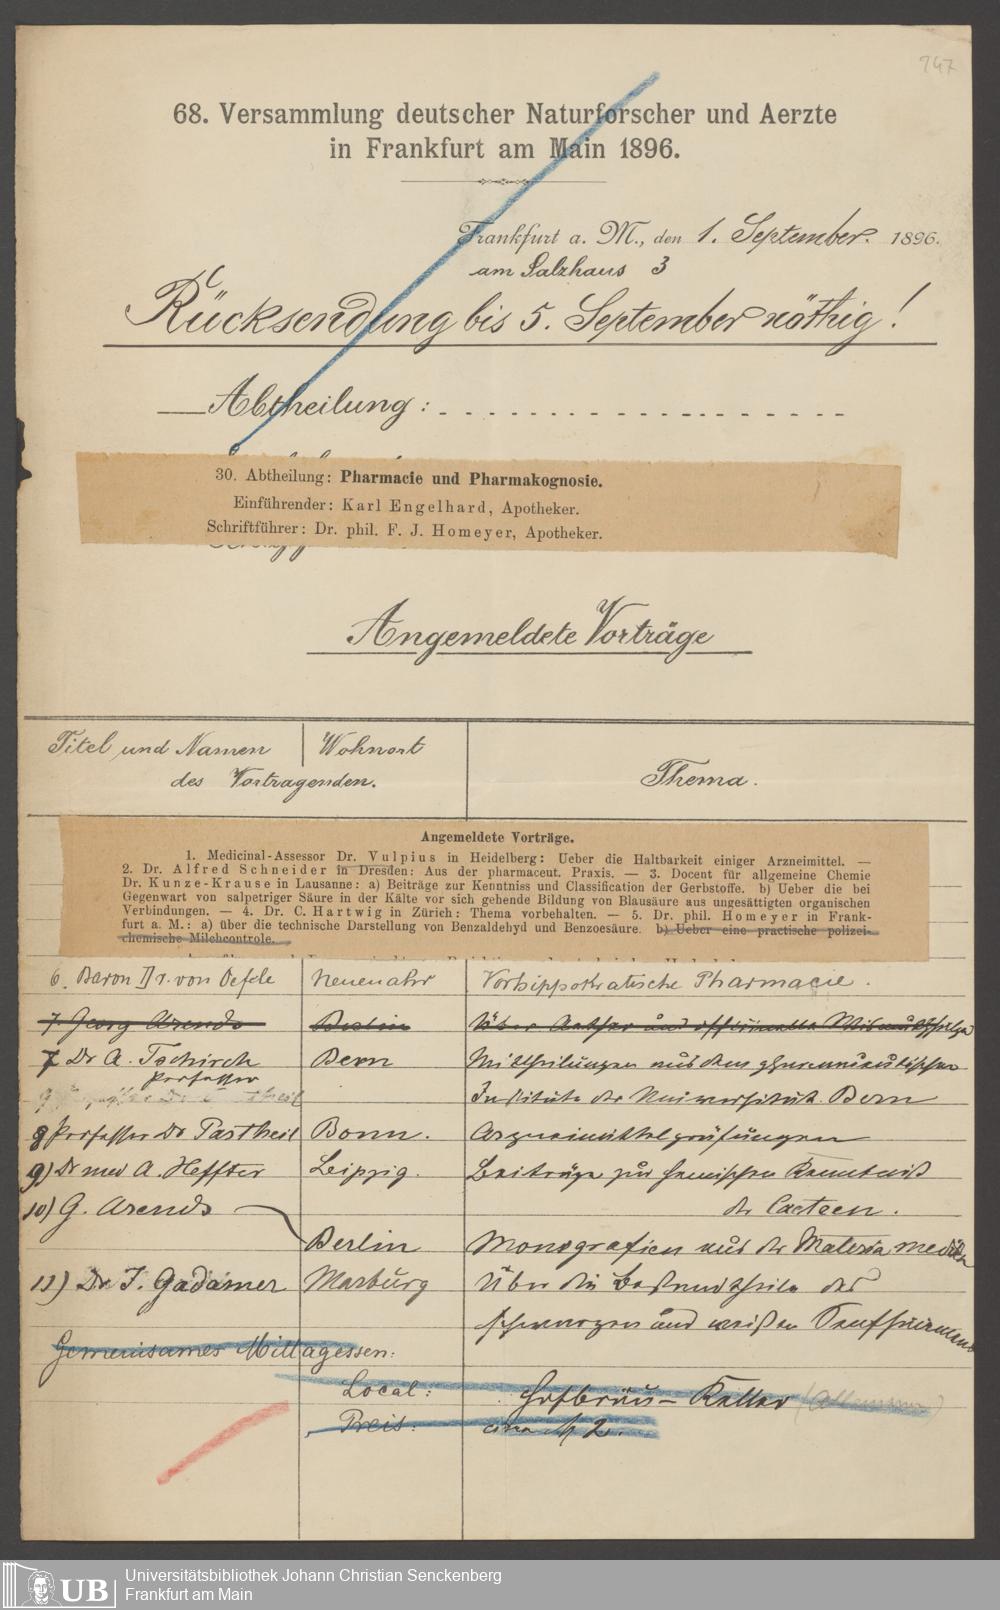 947
68. Versammlung deutscher Naturforscher und Aerzte
in Frankfurt am Main 1896.
Frankfurt a. M., den 1. September. 1896.
am Salzhaus 3
Rücksendung bis 5. September nöthig!
Abtheilung:
30. Abtheilung: Pharmacie und Pharmakognosie.
Einführender: Karl Engelhard, Apotheker.
Schriftführer: Dr. phil. F. J. Homeyer, Apotheker.
Angemeldete Vorträge
Titel und Namen Wohnort
des Vortragenden.
Thema.
Angemeldete Vorträge.
1. Medicinal-Assessor Dr. Vulpius in Heidelberg: Ueber die Haltbarkeit einiger Arzneimittel. —
2. Dr. Alfred Schneider in Dresden: Aus der pharmaceut. Praxis. — 3. Docent für allgemeine Chemie
Dr. Kunze-Krause in Lausanne: a) Beiträge zur Kenntniss und Classification der Gerbstoffe. b) Ueber die bei
Gegenwart von salpetriger Säure in der Kälte vor sich gehende Bildung von Blausäure aus ungesättigten organischen
Verbindungen. — 4. Dr. C. Hartwig in Zürich: Thema vorbehalten. — 5. Dr. phil. Homeyer in Frank-
furt a. M.: a) über die technische Darstellung von Benzaldehyd und Benzoesäure. b) Ueber eine practische polizei-
chemische Milchcontrole.
6. Baron Dr. von Oefele Neuenahr Vorhippokratische Pharmacie.
7. Georg Arends Berlin Über Aether und officinelle
7 Dr A. Tschirch Bern Mittheilungen aus dem pharmaceutischen
Professor
Institute der Universität Bern
8 Professor Dr Partheil Bonn. Arzneimittelprüfungen
9) Dr med A. Heffter Leipzig. Beiträge zur chemischen Kenntniß
der Cacteen.
10) G. Arends
Berlin Monografien aus der Materia medica
11) Dr J. Gadamer Marburg Über die Bestandtheile des
schwarzen und weißen Senfsamens
Gemeinsames Mittagessen:
Local: Hofbräu-Keller (Allemania)
Preis: circa M 2.
UB Universitätsbibliothek Johann Christian Senckenberg
Frankfurt am Main